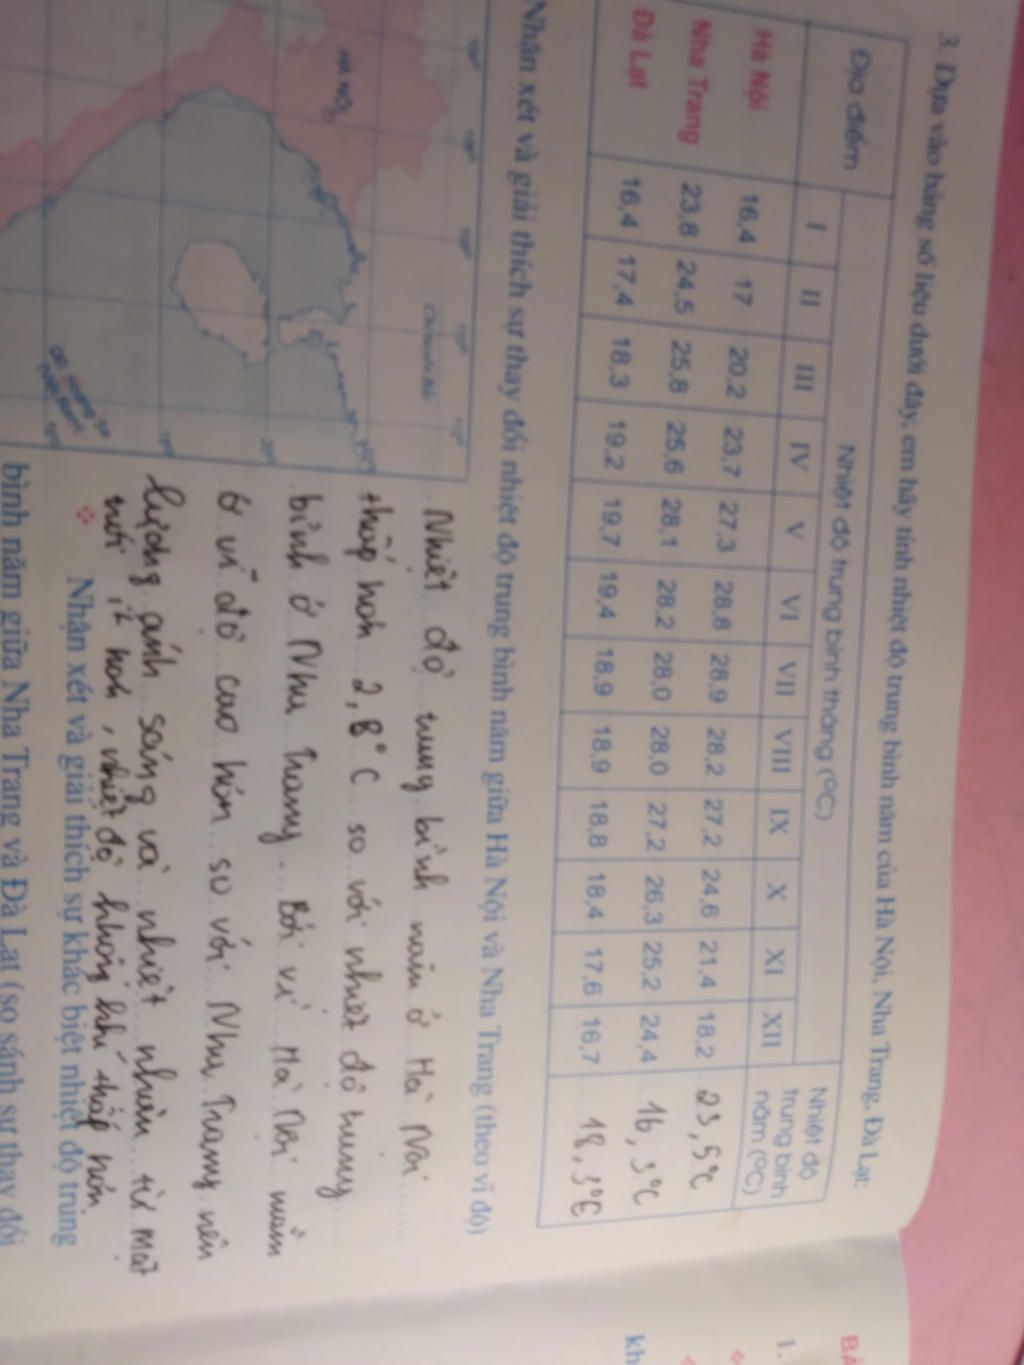 3. Dựa vào bảng số liệu dưới đây, em hãy tính nhiệt độ trung bình năm của Hà Nội, Nha Trang, Đà Lạt:
Địa điểm Nhiệt độ trung bình tháng (°C) Nhiệt độ trung bình năm (°C)
I II III IV V VI VII VIII IX X XI XII
Hà Nội 16,4 17 20,2 23,7 27,3 28,8 28,9 28,2 27,2 24,6 21,4 18,2 23,5°C
Nha Trang 23,8 24,5 25,8 25,6 28,1 28,2 28,0 28,0 27,2 26,3 25,2 24,4 16,3°C
Đà Lạt 16,4 17,4 18,3 19,2 19,7 19,4 18,9 18,9 18,8 18,4 17,6 16,7 18,3°C
Nhận xét và giải thích sự thay đổi nhiệt độ trung bình năm giữa Hà Nội và Nha Trang (theo vĩ độ)
HÀ NỘI
QĐ. Hoàng Sa
(Việt Nam)
Nhiệt độ trung bình năm ở Hà Nội
thấp hơn 2,8°C so với nhiệt độ trung
bình ở Nha Trang. Bởi vì Hà Nội nằm
ở vĩ độ cao hơn so với Nha Trang nên
lượng ánh sáng và nhiệt nhận từ mặt
trời ít hơn, nhiệt độ không khí thấp hơn
❖ Nhận xét và giải thích sự khác biệt nhiệt độ trung
bình năm giữa Nha Trang và Đà Lạt (so sánh sự thay đổi
BÀ
1.
kh